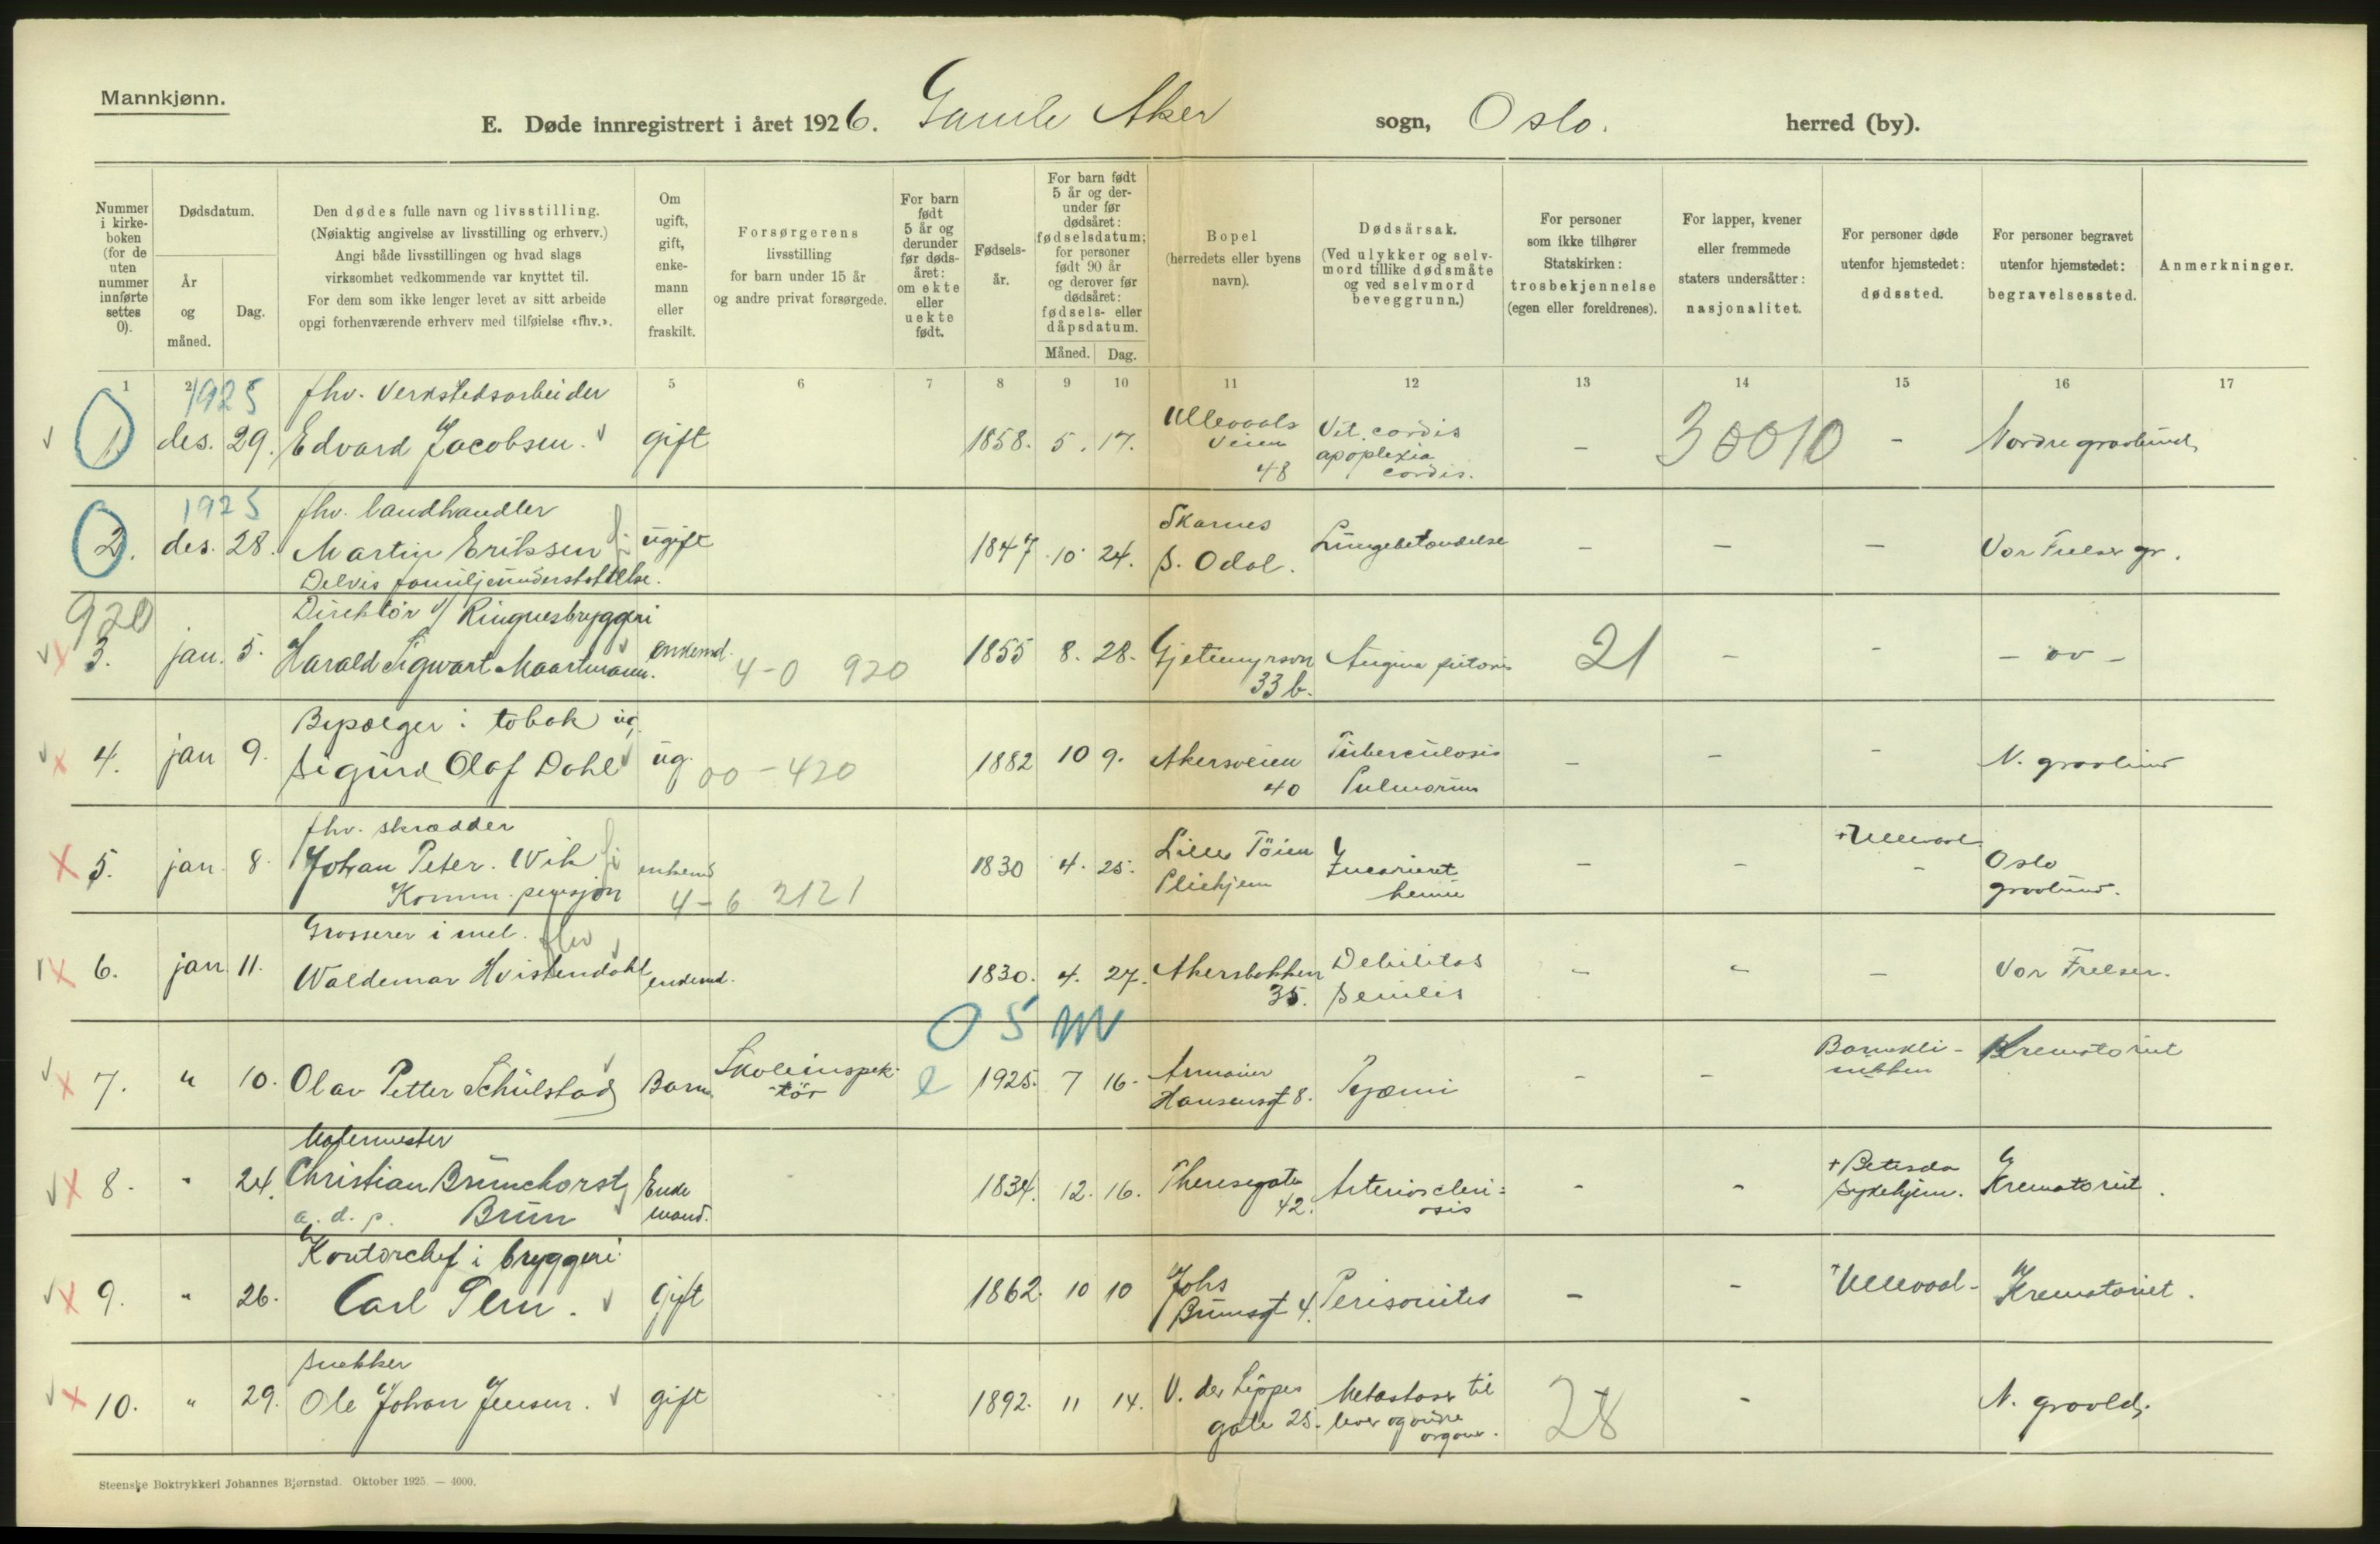 Mannkjønn.
E. Døde innregistrert i året 1926. Gamle Aker sogn, Oslo. herred (by).
Nummer i kirke-boken (for de uten nummer innførte settes 0).
Dødsdatum.
År og måned.
Dag.
Den dødes fulle navn og livsstilling.
(Nøiaktig angivelse av livsstilling og erhverv.)
Angi både livsstillingen og hvad slags
virksomhet vedkommende var knyttet til.
For dem som ikke lenger levet av sitt arbeide
opgi forhenværende erhverv med tilføielse «fhv.».
Om ugift, gift, enke-mann eller fraskilt.
Forsørgerens
livsstilling
for barn under 15 år
og andre privat forsørgede.
For barn født 5 år og derunder før døds-året: om ekte eller uekte født.
Fødsels-år.
For barn født 5 år og der-under før dødsåret: fødselsdatum; for personer født 90 år og derover før dødsåret: fødsels- eller dåpsdatum.
Måned. Dag.
Bopel
(herredets eller byens
navn).
Dødsårsak.
(Ved ulykker og selv-
mord tillike dødsmåte
og ved selvmord
beveggrunn.)
For personer
som ikke tilhører
Statskirken:
trosbekjennelse
(egen eller foreldrenes).
For lapper, kvener
eller fremmede
staters undersåtter:
nasjonalitet.
For personer døde
utenfor hjemstedet:
dødssted.
For personer begravet
utenfor hjemstedet:
begravelsessted.
Anmerkninger.
1 2 5 6 7 8 9 10 11 12 13 14 15 16 17
1925 fhv. Verkstedsarbeider
1. des. 29. Edvard Jacobsen. gift 1858. 5. 17. Ullevoals veien 48 Vit. cordis apoplexia cordis. - 30010 - Nordre gravlund
1925 fhv. landhandler
2. des. 28. Martin Eriksen ugift 1847 10 24. Skarnes S. Odal. Lungebetændelse - - - Vor Frelser gr.
Delvis familjeunderstøttelse.
920 Direktör v/ Ringnesbryggeri
3. jan. 5. Harald Sigwart Maartmann. enkemd. 4-0 920 1855 8. 28. Gjetemyrsvn 33 b. Angina pectoris 21 - - - " -
4. jan 9. Sigurd Olaf Dahl ug. 00-420 1882 10 9. Akersveien 40 Tuberculosis Pulmonum - - - N. gravlund
fhv. skrædder
5. jan 8. Johan Peter. Wik enkemd 4-6 2121 1830 4. 25. Lille Töien Pleiehjem - - + Ullevaal - Oslo gravlund.
Komm. pensjon
Grosserer i mel. fhv
6. jan 11. Waldemar Hvistendahl enkemd. 1830. 4. 27. Akersbakken 35. Debilitas Senilis - - - Vor Frelser.
05 M
7. " 10. Olav Petter Schulstad Barn Skoleinspek-tör e 1925. 7 16. Armauer Hansensgt 8. Pyæmi - - Barnekli-nikken Krematoriet
Malermester
8. " 24. Christian Brunchorst Enke mand. 1834. 12. 16. Theresegate 42. Arterioscleri=osis - - + Betesda Sykehjem. Krematoriet.
a. d. p. Brun
Kontorchef i bryggeri
9. " 26. Carl gift 1862. 10 10 Johs Brunsgt 4. - - + Ullevaal - Krematoriet.
Snekker
10. " 29. Ole Johan Jensen. gift 1892. 11 14. V. der Lippes gate 25. Metastaser til lever og andre organer. 28 - N. gravld.
Steenske Boktrykkeri Johannes Bjørnstad. Oktober 1925. — 4000.